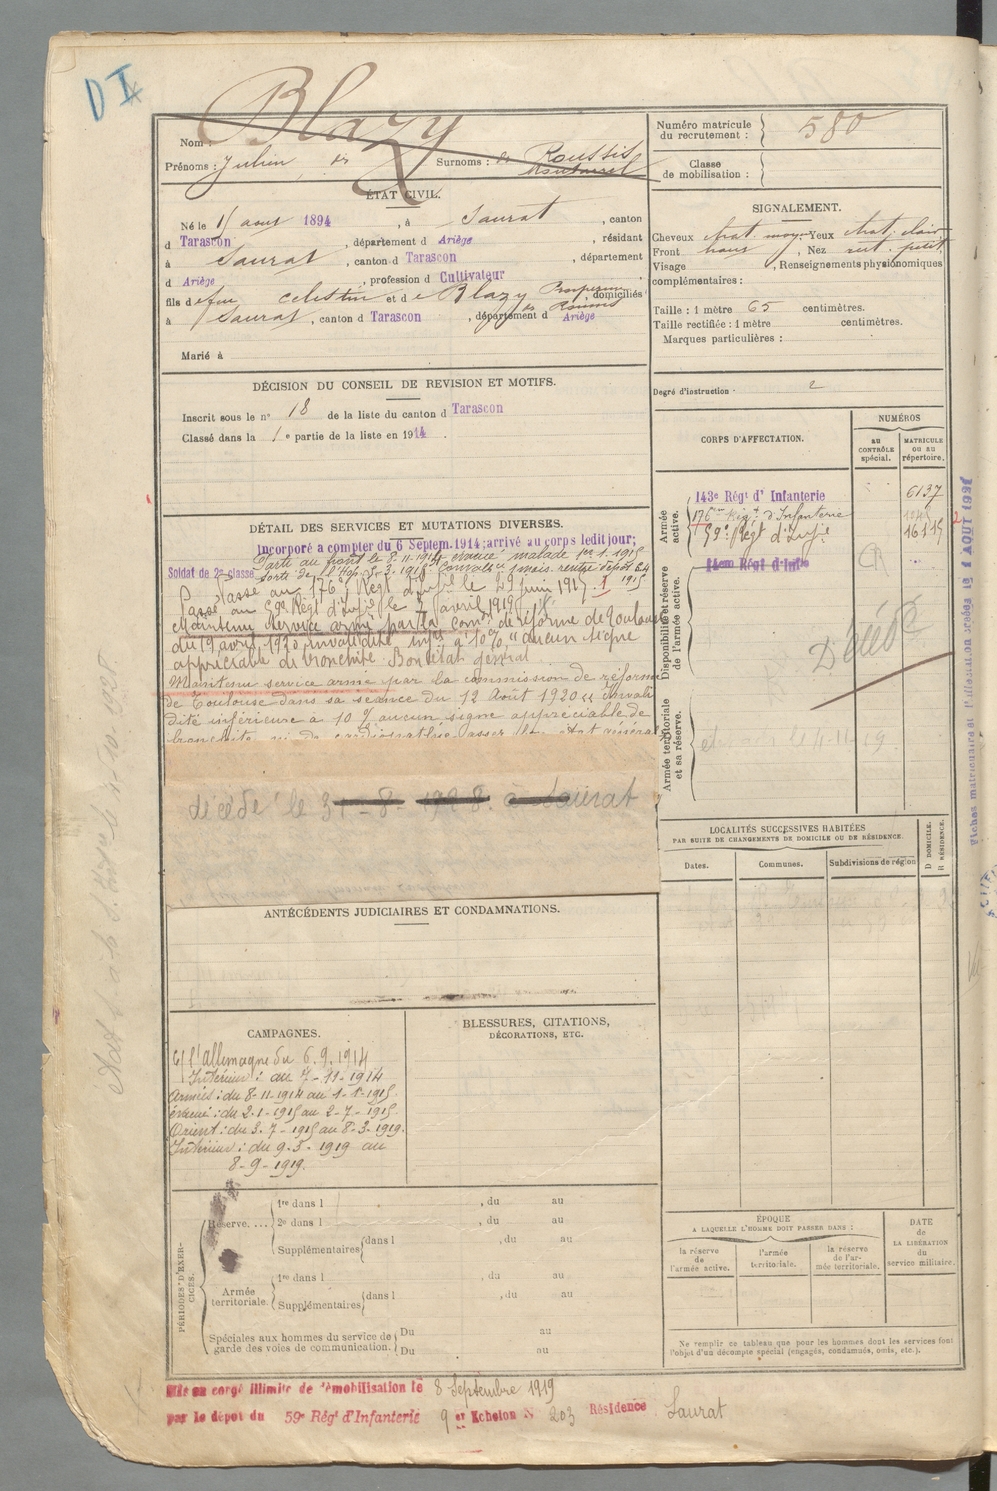 D I
Blazy
Nom :
Prénoms : Julien, Surnoms : Roussis
Numéro matricule du recrutement : 580
Classe de mobilisation :
ÉTAT CIVIL.
Né le 15 août 1894, à Saurat, canton
d Tarascon, département d Ariège, résidant
à Saurat, canton d Tarascon, département
d Ariège, profession d Cultivateur
fils de feu Celestin et de Blazy, domiciliés
à Saurat, canton d Tarascon, département d Ariège
Marié à
SIGNALEMENT.
Cheveux chat. moy. Yeux chat. clair
Front haut, Nez rect. petit
Visage, Renseignements physionomiques
complémentaires :
Taille : 1 mètre 65 centimètres.
Taille rectifiée : 1 mètre centimètres.
Marques particulières :
Degré d'instruction. 2
DÉCISION DU CONSEIL DE REVISION ET MOTIFS.
Inscrit sous le n° 18 de la liste du canton d Tarascon
Classé dans la 1e partie de la liste en 1914.
CORPS D'AFFECTATION.
NUMÉROS
au CONTRÔLE spécial.
MATRICULE OU AU répertoire.
Armée active.
143e Régt d'Infanterie 6137
176me Régt d'Infanterie
59e Régt d'Infie 16115
Disponibilité et réserve de l'armée active.
14eme Régt d'Infie
Décédé
Armée territoriale et sa réserve.
DÉTAIL DES SERVICES ET MUTATIONS DIVERSES.
Incorporé à compter du 6 Septem. 1914; arrivé au corps ledit jour;
Soldat de 2e classe
Parti au front le 8-11-1914 évacué malade le 1-1-1915
Passé au 176e Régt d'Infie le 29 juin 1915
Passé au 59e Régt d'Infie le avril 1919
Maintenu service armé par la comon de réforme de Toulouse
du 19 avril 1920 invalidité infre à 10% "aucun signe
appréciable de bronchite. Bon état général
Maintenu service armé par la commission de réforme
de Toulouse dans sa séance du 12 Août 1920 "invali
dité inférieure à 10 % aucun signe appréciable de
bronchite ni de cardiopathie assez bon état général
décédé le 31-8-1928 à Saurat
LOCALITÉS SUCCESSIVES HABITÉES
PAR SUITE DE CHANGEMENTS DE DOMICILE OU DE RÉSIDENCE.
D DOMICILE.
R RÉSIDENCE.
Dates.
Communes.
Subdivisions de région
ANTÉCÉDENTS JUDICIAIRES ET CONDAMNATIONS.
CAMPAGNES.
C/ l'allemagne du 6.9.1914
Intérieur : au 7-11-1914
Armées : du 8-11-1914 au 1-1-1915
évacué : du 2-1-1915 au 2-7-1915
Orient : du 3-7-1915 au 8-3-1919.
Intérieur : du 9-3-1919 au
8-9-1919.
BLESSURES, CITATIONS,
DÉCORATIONS, ETC.
PÉRIODES D'EXERCICES.
Réserve....
1re dans l, du au
2e dans l, du au
Supplémentaires dans l, du au
Armée territoriale.
1re dans l, du au
Supplémentaires dans l, du au
Spéciales aux hommes du service de garde des voies de communication.
Du au
Du au
ÉPOQUE
A LAQUELLE L'HOMME DOIT PASSER DANS :
la réserve de l'armée active.
l'armée territoriale.
la réserve de l'armée territoriale.
DATE de LA LIBÉRATION du service militaire.
Ne remplir ce tableau que pour les hommes dont les services font
l'objet d'un décompte spécial (engagés, condamnés, omis, etc.).
Mis en congé illimité de démobilisation le 8 Septembre 1919
par le dépôt du 59e Régt d'Infanterie 9 er Echelon N° 203 Résidence Saurat